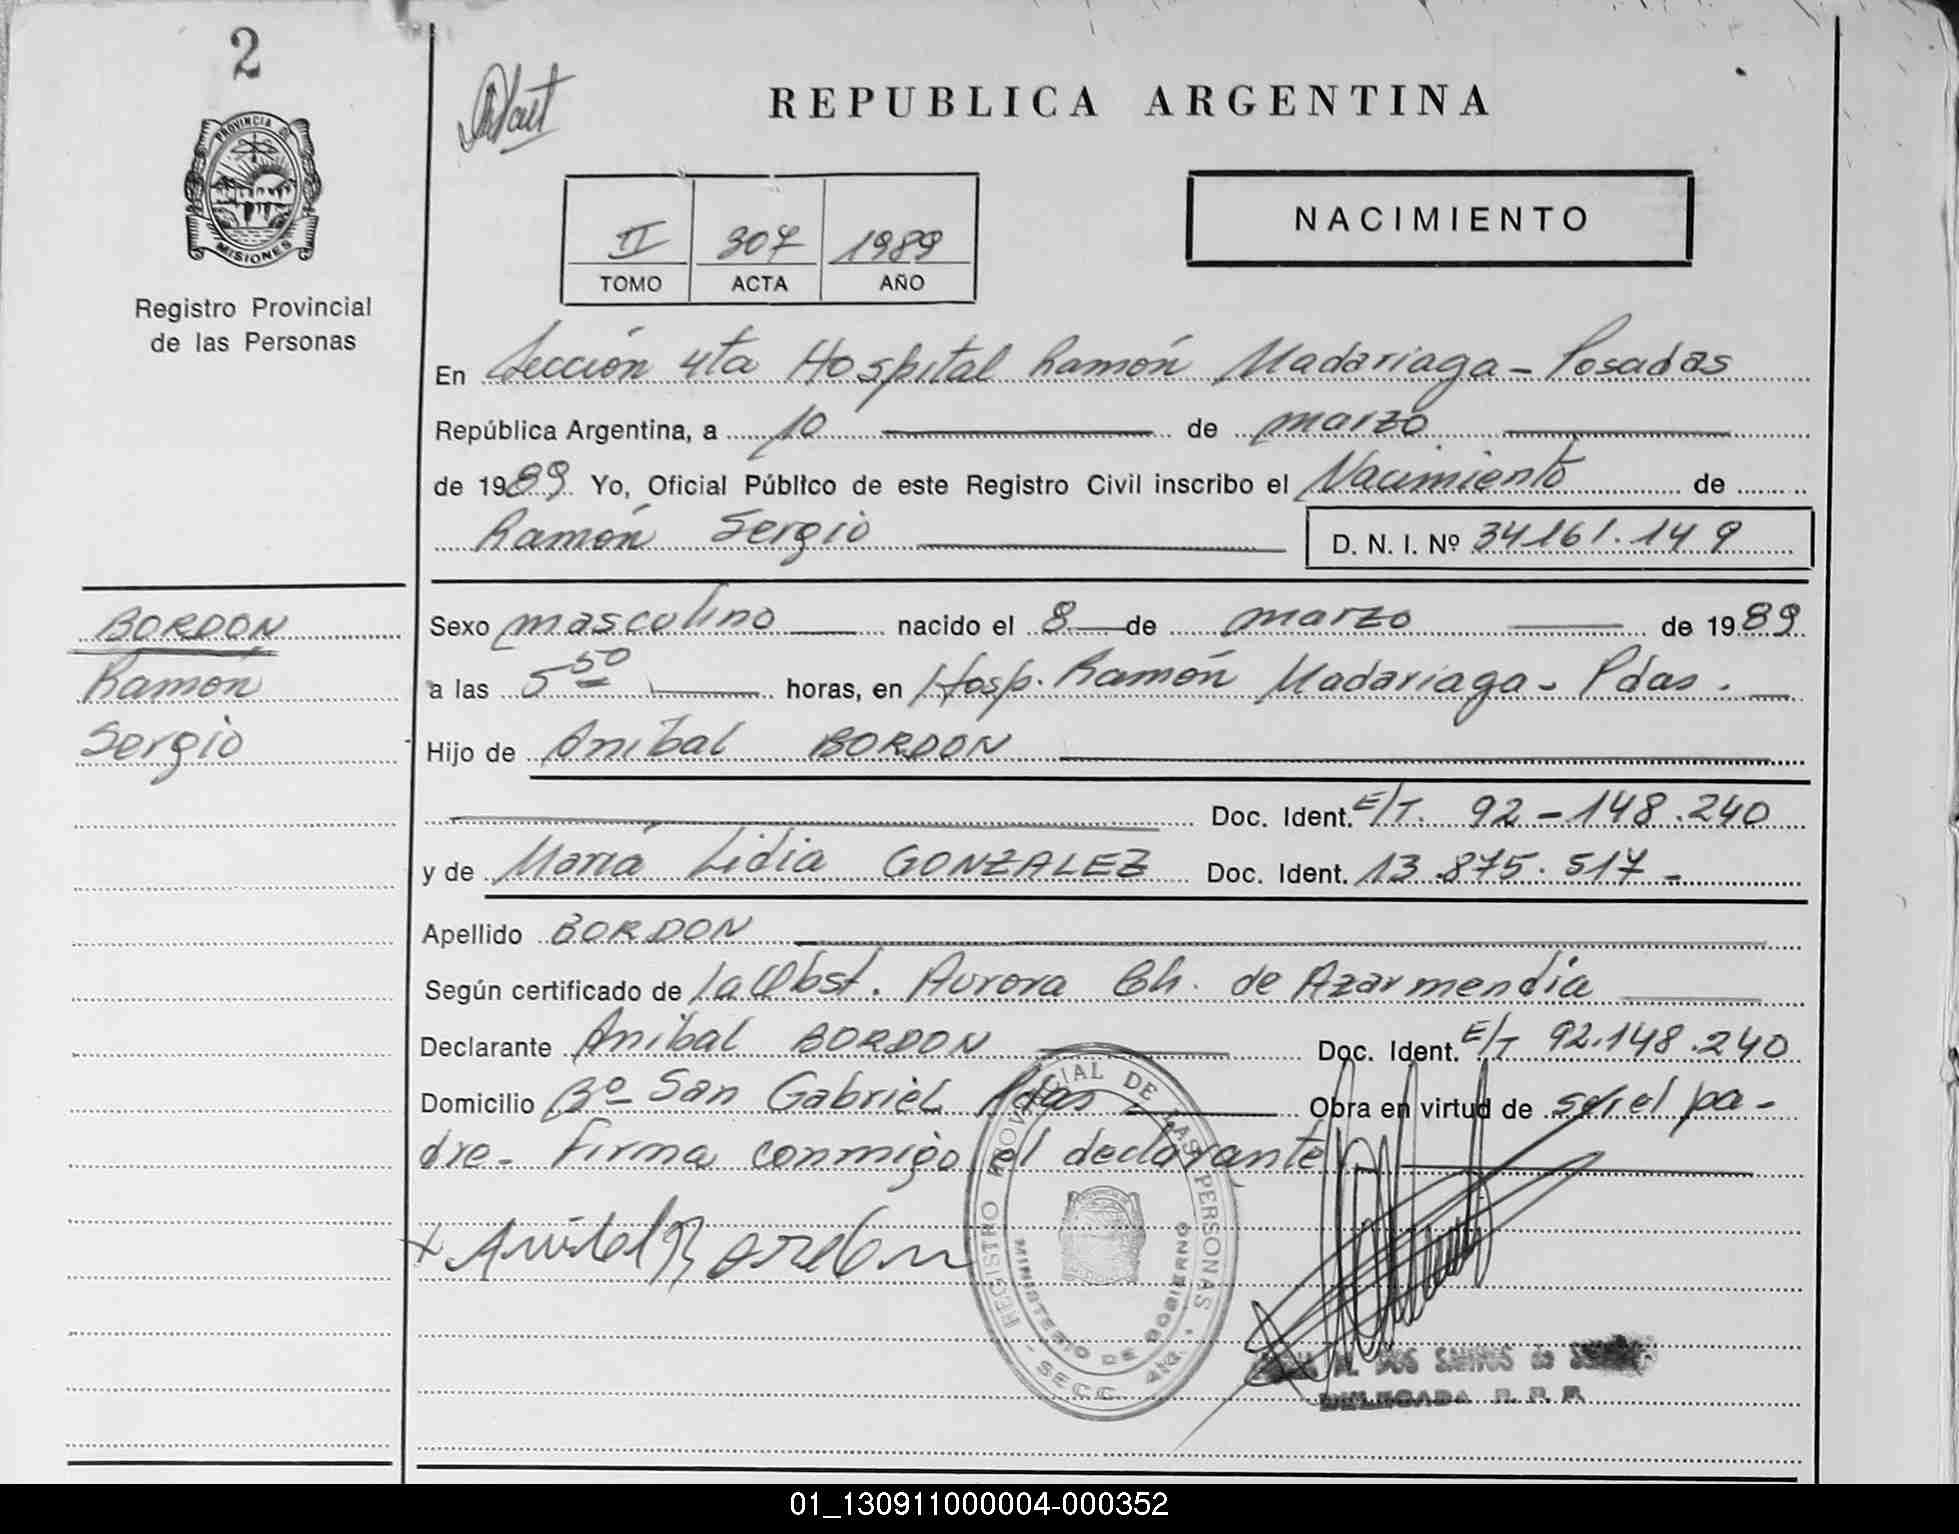 2
REPUBLICA ARGENTINA
PROVINCIA DE
MISIONES
Registro Provincial
de las Personas
II 307 1989
TOMO ACTA AÑO
NACIMIENTO
En Sección 4ta Hospital Ramón Madariaga - Posadas
República Argentina, a 10 de marzo
de 1989 Yo, Oficial Público de este Registro Civil inscribo el Nacimiento de
Ramón Sergio D. N. I. Nº 34161.149
BORDON
Ramón
Sergio
Sexo masculino nacido el 8 de marzo de 1989
a las 5 50 horas, en Hosp. Ramón Madariaga - Pdas.
Hijo de Anibal BORDON
Doc. Ident. E/T. 92-148.240
y de María Lidia GONZALEZ Doc. Ident. 13.875.517-
Apellido BORDON
Según certificado de la Obst. Aurora Ch. de Azarmendia
Declarante Anibal BORDON Doc. Ident. E/T 92.148.240
Domicilio Bº San Gabriel Pdas Obra en virtud de ser el pa-
dre- Firma conmigo el declarante
x Anibal Bordon
REGISTRO PROVINCIAL DE LAS PERSONAS
MINISTERIO DE GOBIERNO
- SECC. 4ta. -
DOS SANTOS de
DELEGADA R. P. P.
01_130911000004-000352